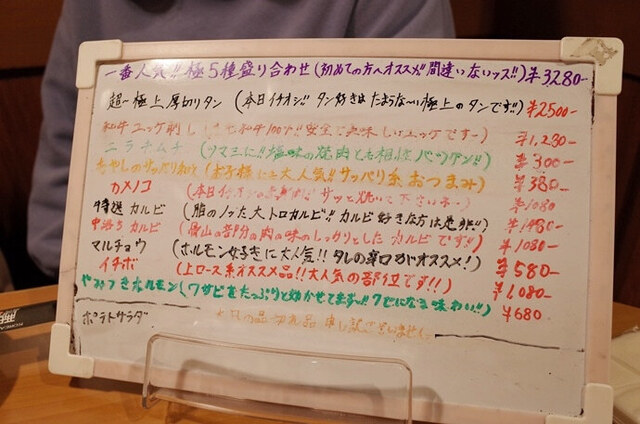 一番人気!! 極5種盛り合わせ (初めての方へオススメ!! 間違いないッス!!) ¥3,280-
超〜極上厚切りタン (本日イチオシ!! タン好きはたまらな〜い極上のタンです!!) ¥2500-
和牛ユッケ刺し ¥1,280-
ニラキムチ (ウマミに!! 塩味の焼肉とも相性バツグン!!) ¥300-
もやしのサッパリ和え (お子様にも大人気!! サッパリ系おつまみ) ¥380-
カメノコ (本日イチオシの赤身 サッと焼いて下さい) ¥1080
特選カルビ (脂のノッた大トロカルビ!! カルビ好きな方は是非!!) ¥1480-
中落ちカルビ (骨山の部分の肉の味のしっかりとしたカルビです!!) ¥1080-
マルチョウ (ホルモン好きに大人気!! タレの辛口がオススメ!) ¥580-
イチボ (上ロース系オススメ品!! 大人気の部位です!!) ¥1,080-
やみつきホルモン (ワサビをたっぷりと効かせてます〜!! クセになる味わい!!) ¥680
ポテトサラダ